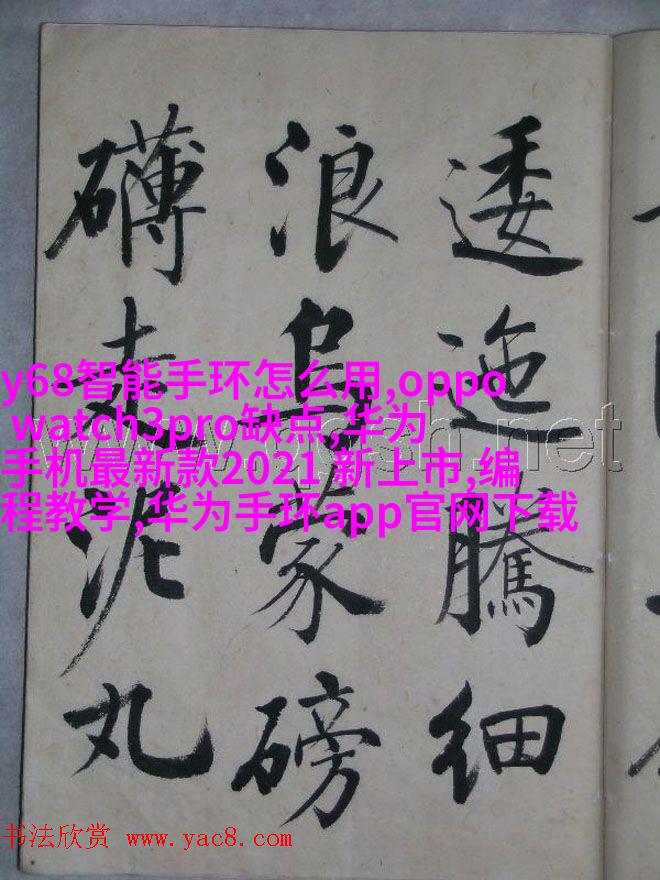 逶迤騰細
浪烏蒙磅
礴走泥丸
y68智能手环怎么用,oppo
watch3pro缺点,华为
手机最新款2021 新上市,编
程教学,华为手环app官网下载
书法欣赏 www.yac8.com